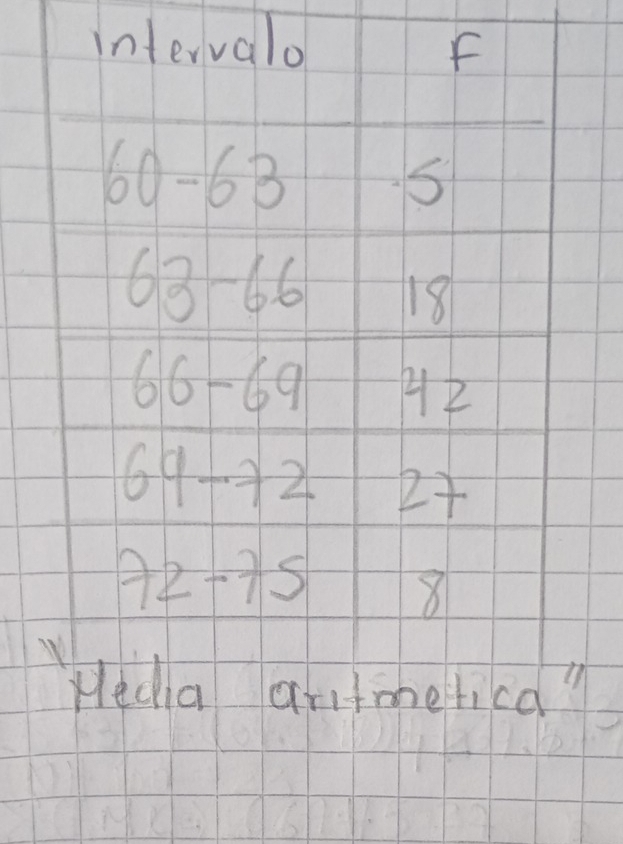 intervalo F
60-63 5
63-66 18
66-69 42
69-72 27
72-75 8
"Media aritmetica" =